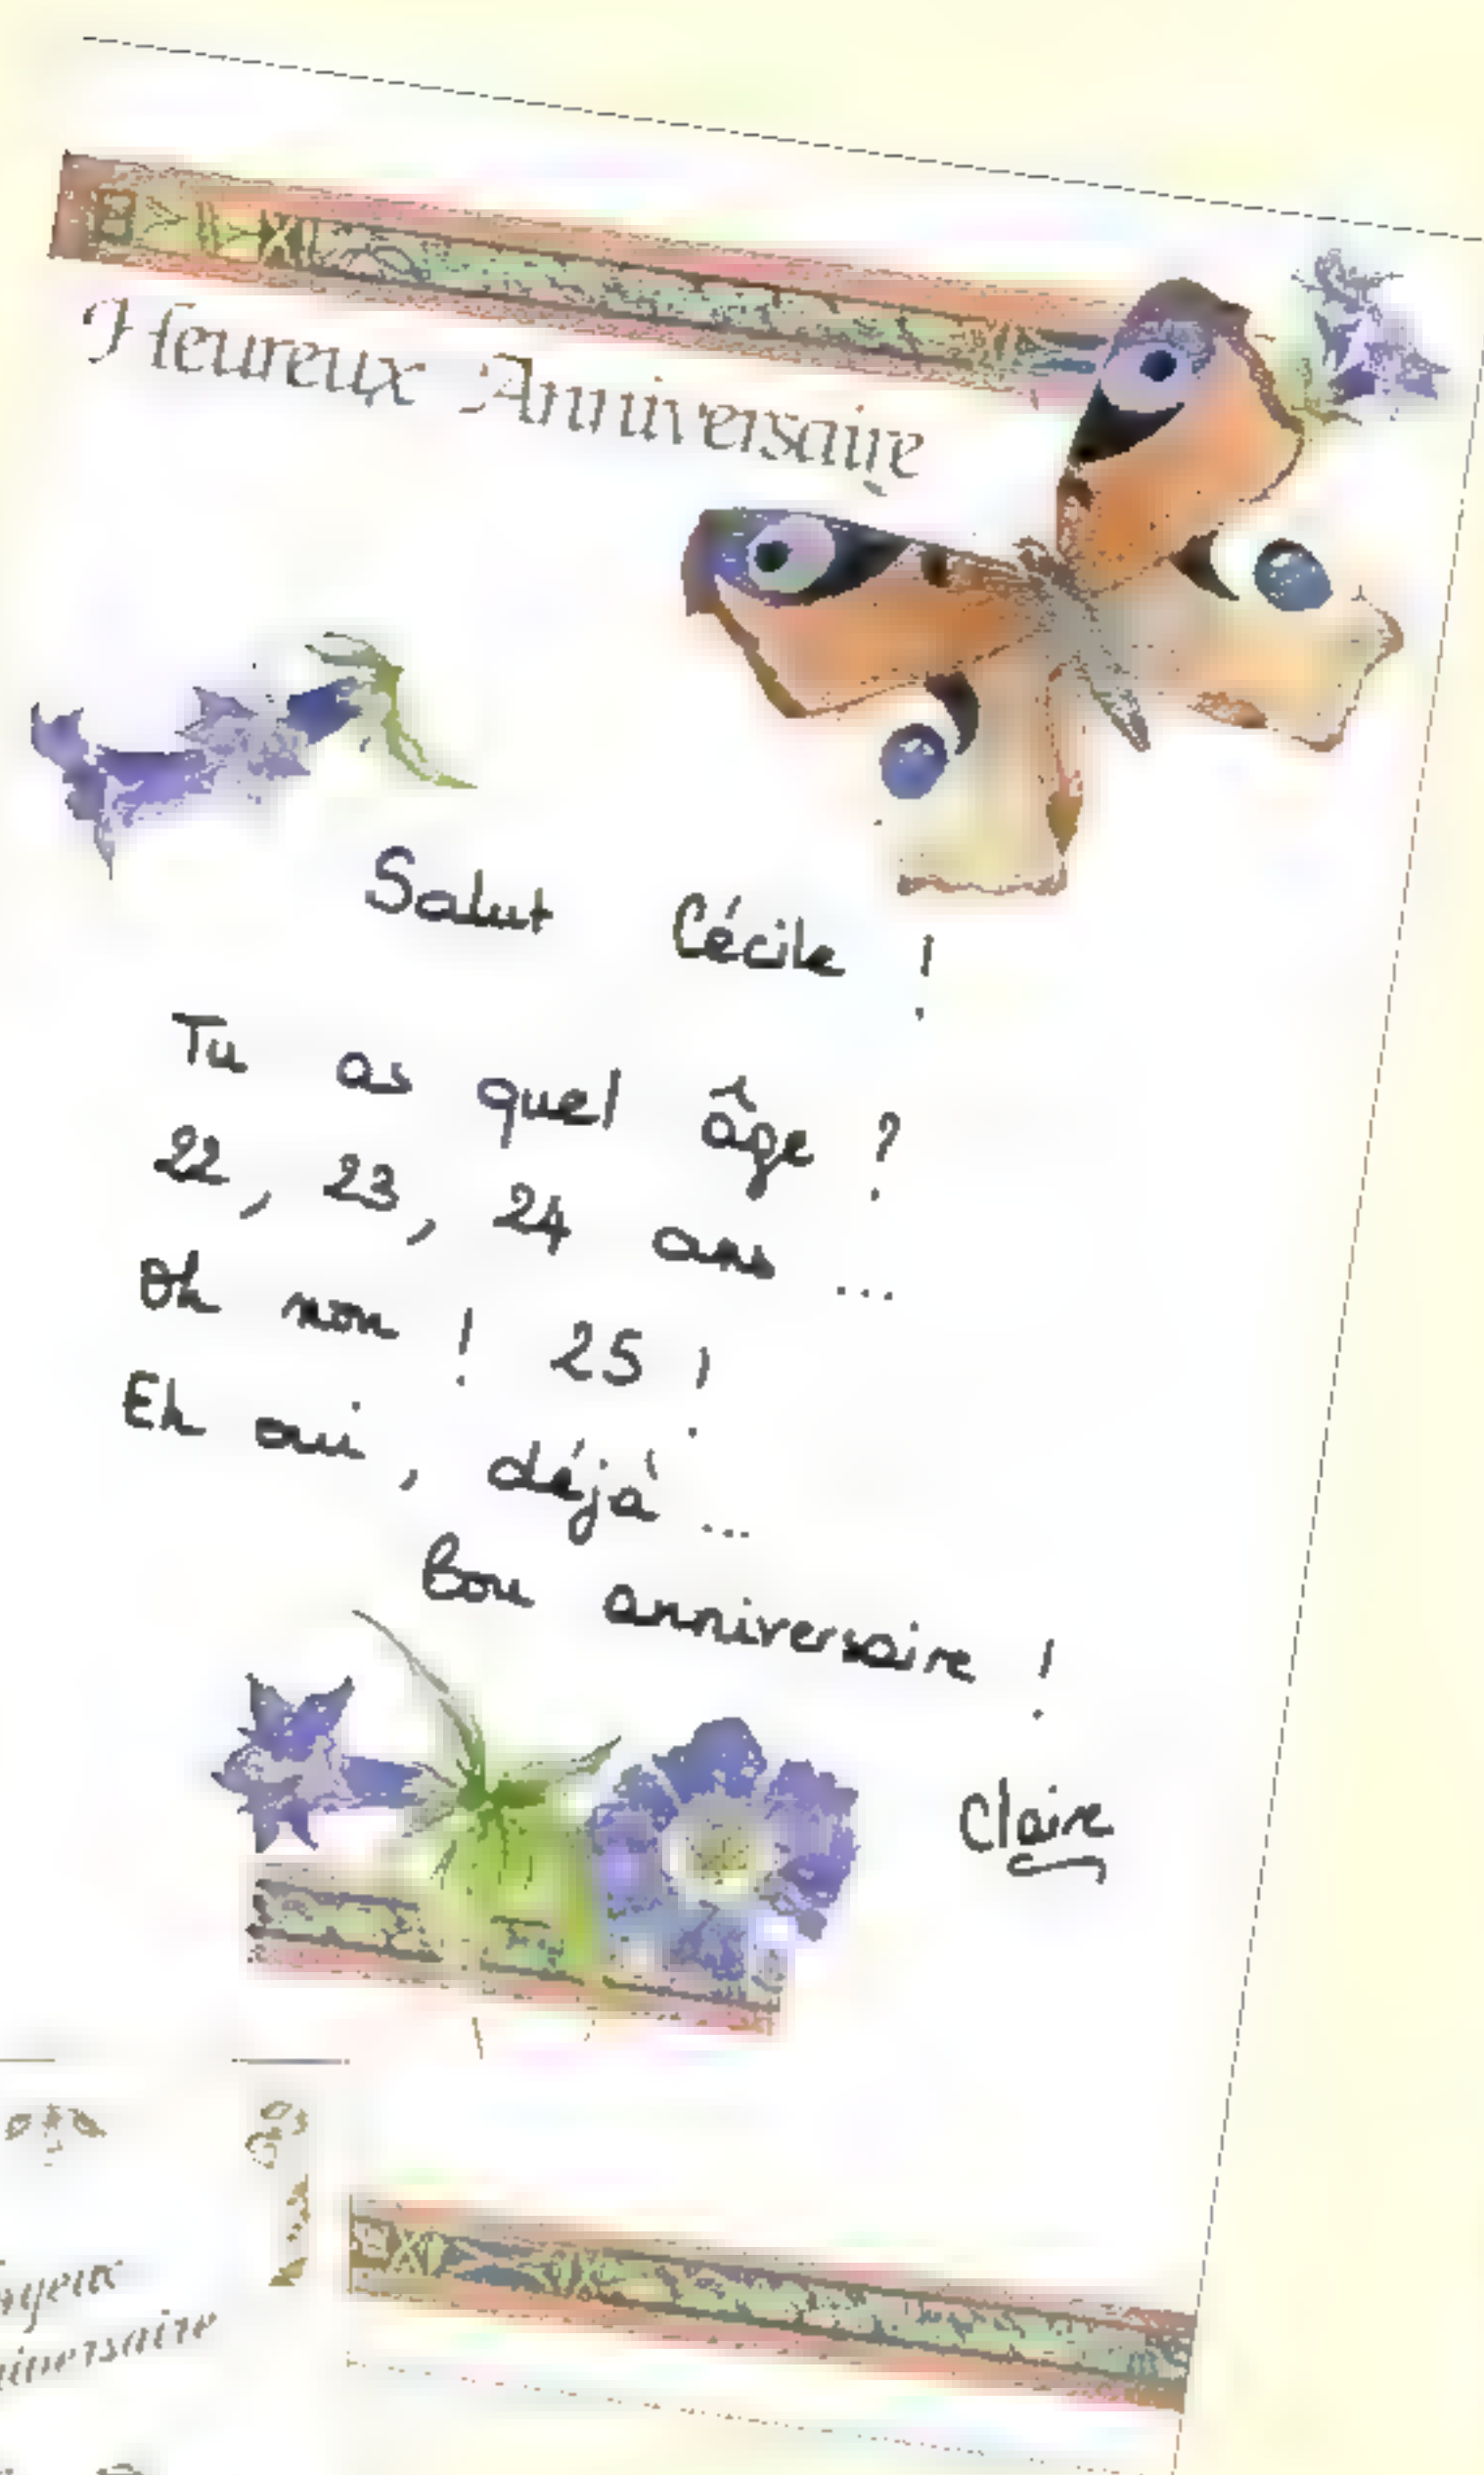 Heureux Anniversaire
Salut Cécile !
Tu as quel âge ?
22, 23, 24 ans ...
Oh non ! 25 !
Eh oui, déjà ...
Bon anniversaire !
Claire